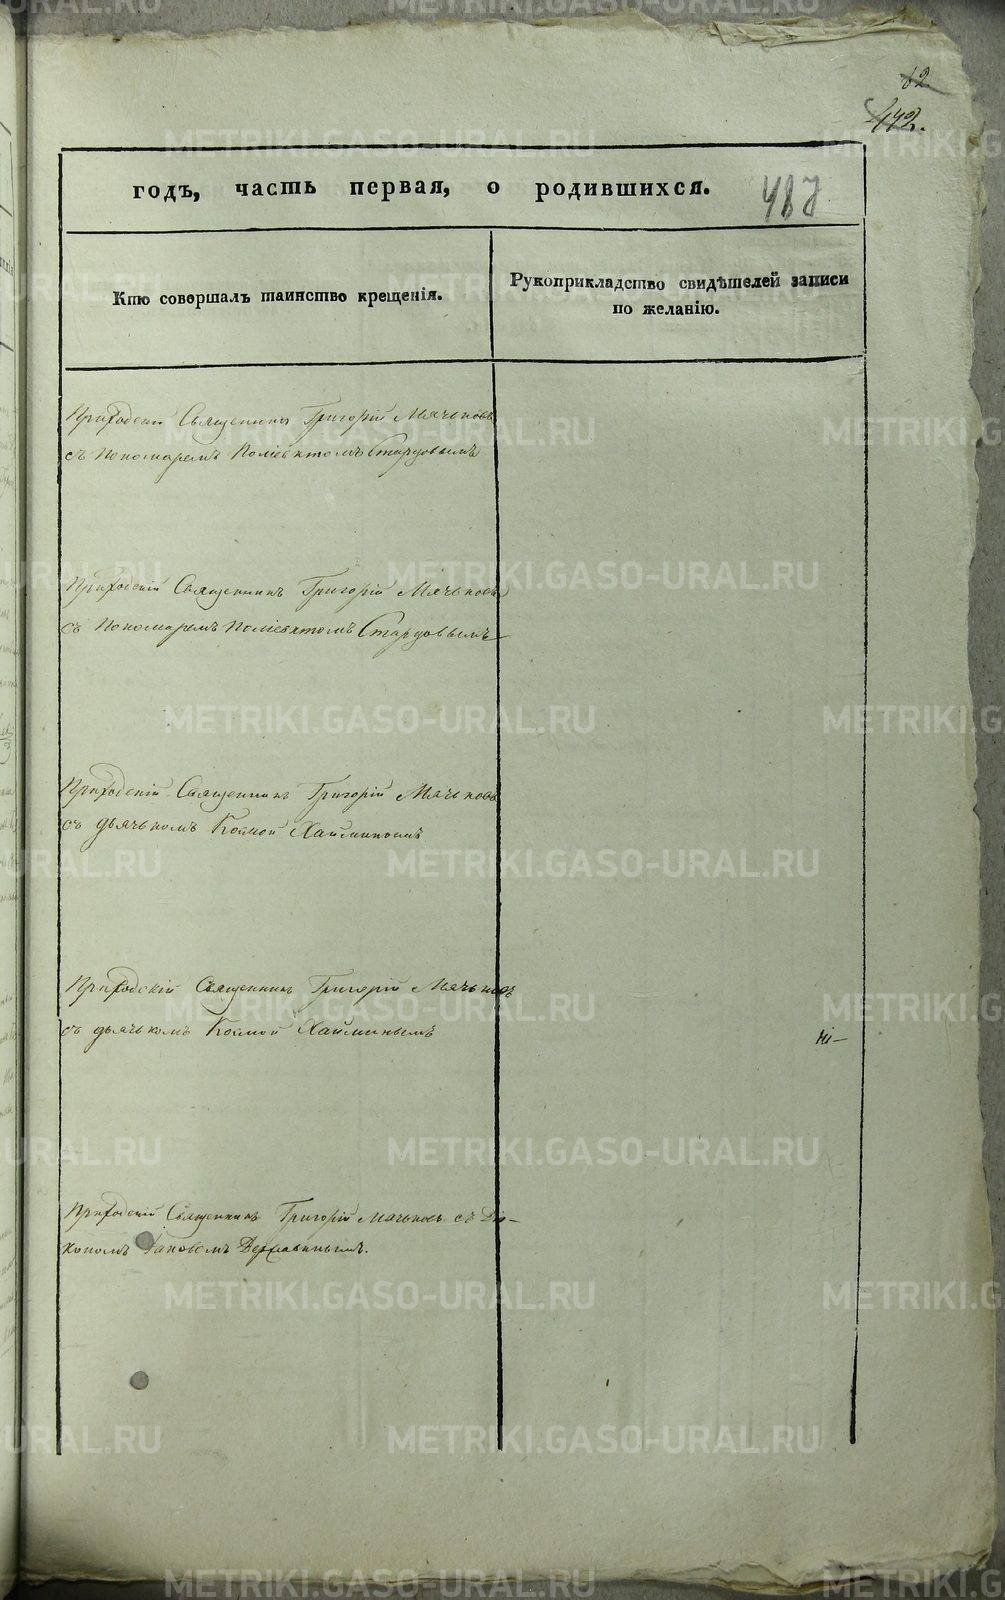 62
472.
годъ, часть первая, о родившихся. 487
Кто совершалъ таинство крещенія.
Рукоприкладство свидѣтелей записи
по желанію.
Приходскій Священникъ Григорій Мячьковъ
съ Пономаремъ Поліевктомъ Старцовымъ
Приходскій Священникъ Григорій Мячьковъ
съ Пономаремъ Поліевктомъ Старцовымъ
Приходскій Священникъ Григорій Мячьковъ
съ дьячькомъ Космой Хайминымъ
Приходскій Священникъ Григорій Мячьковъ
съ дьячькомъ Космой Хайминымъ
Приходскій Священникъ Григорій Мячьковъ съ Діа-
кономъ Іаковомъ Державинымъ.
METRIKI.GASO-URAL.RU